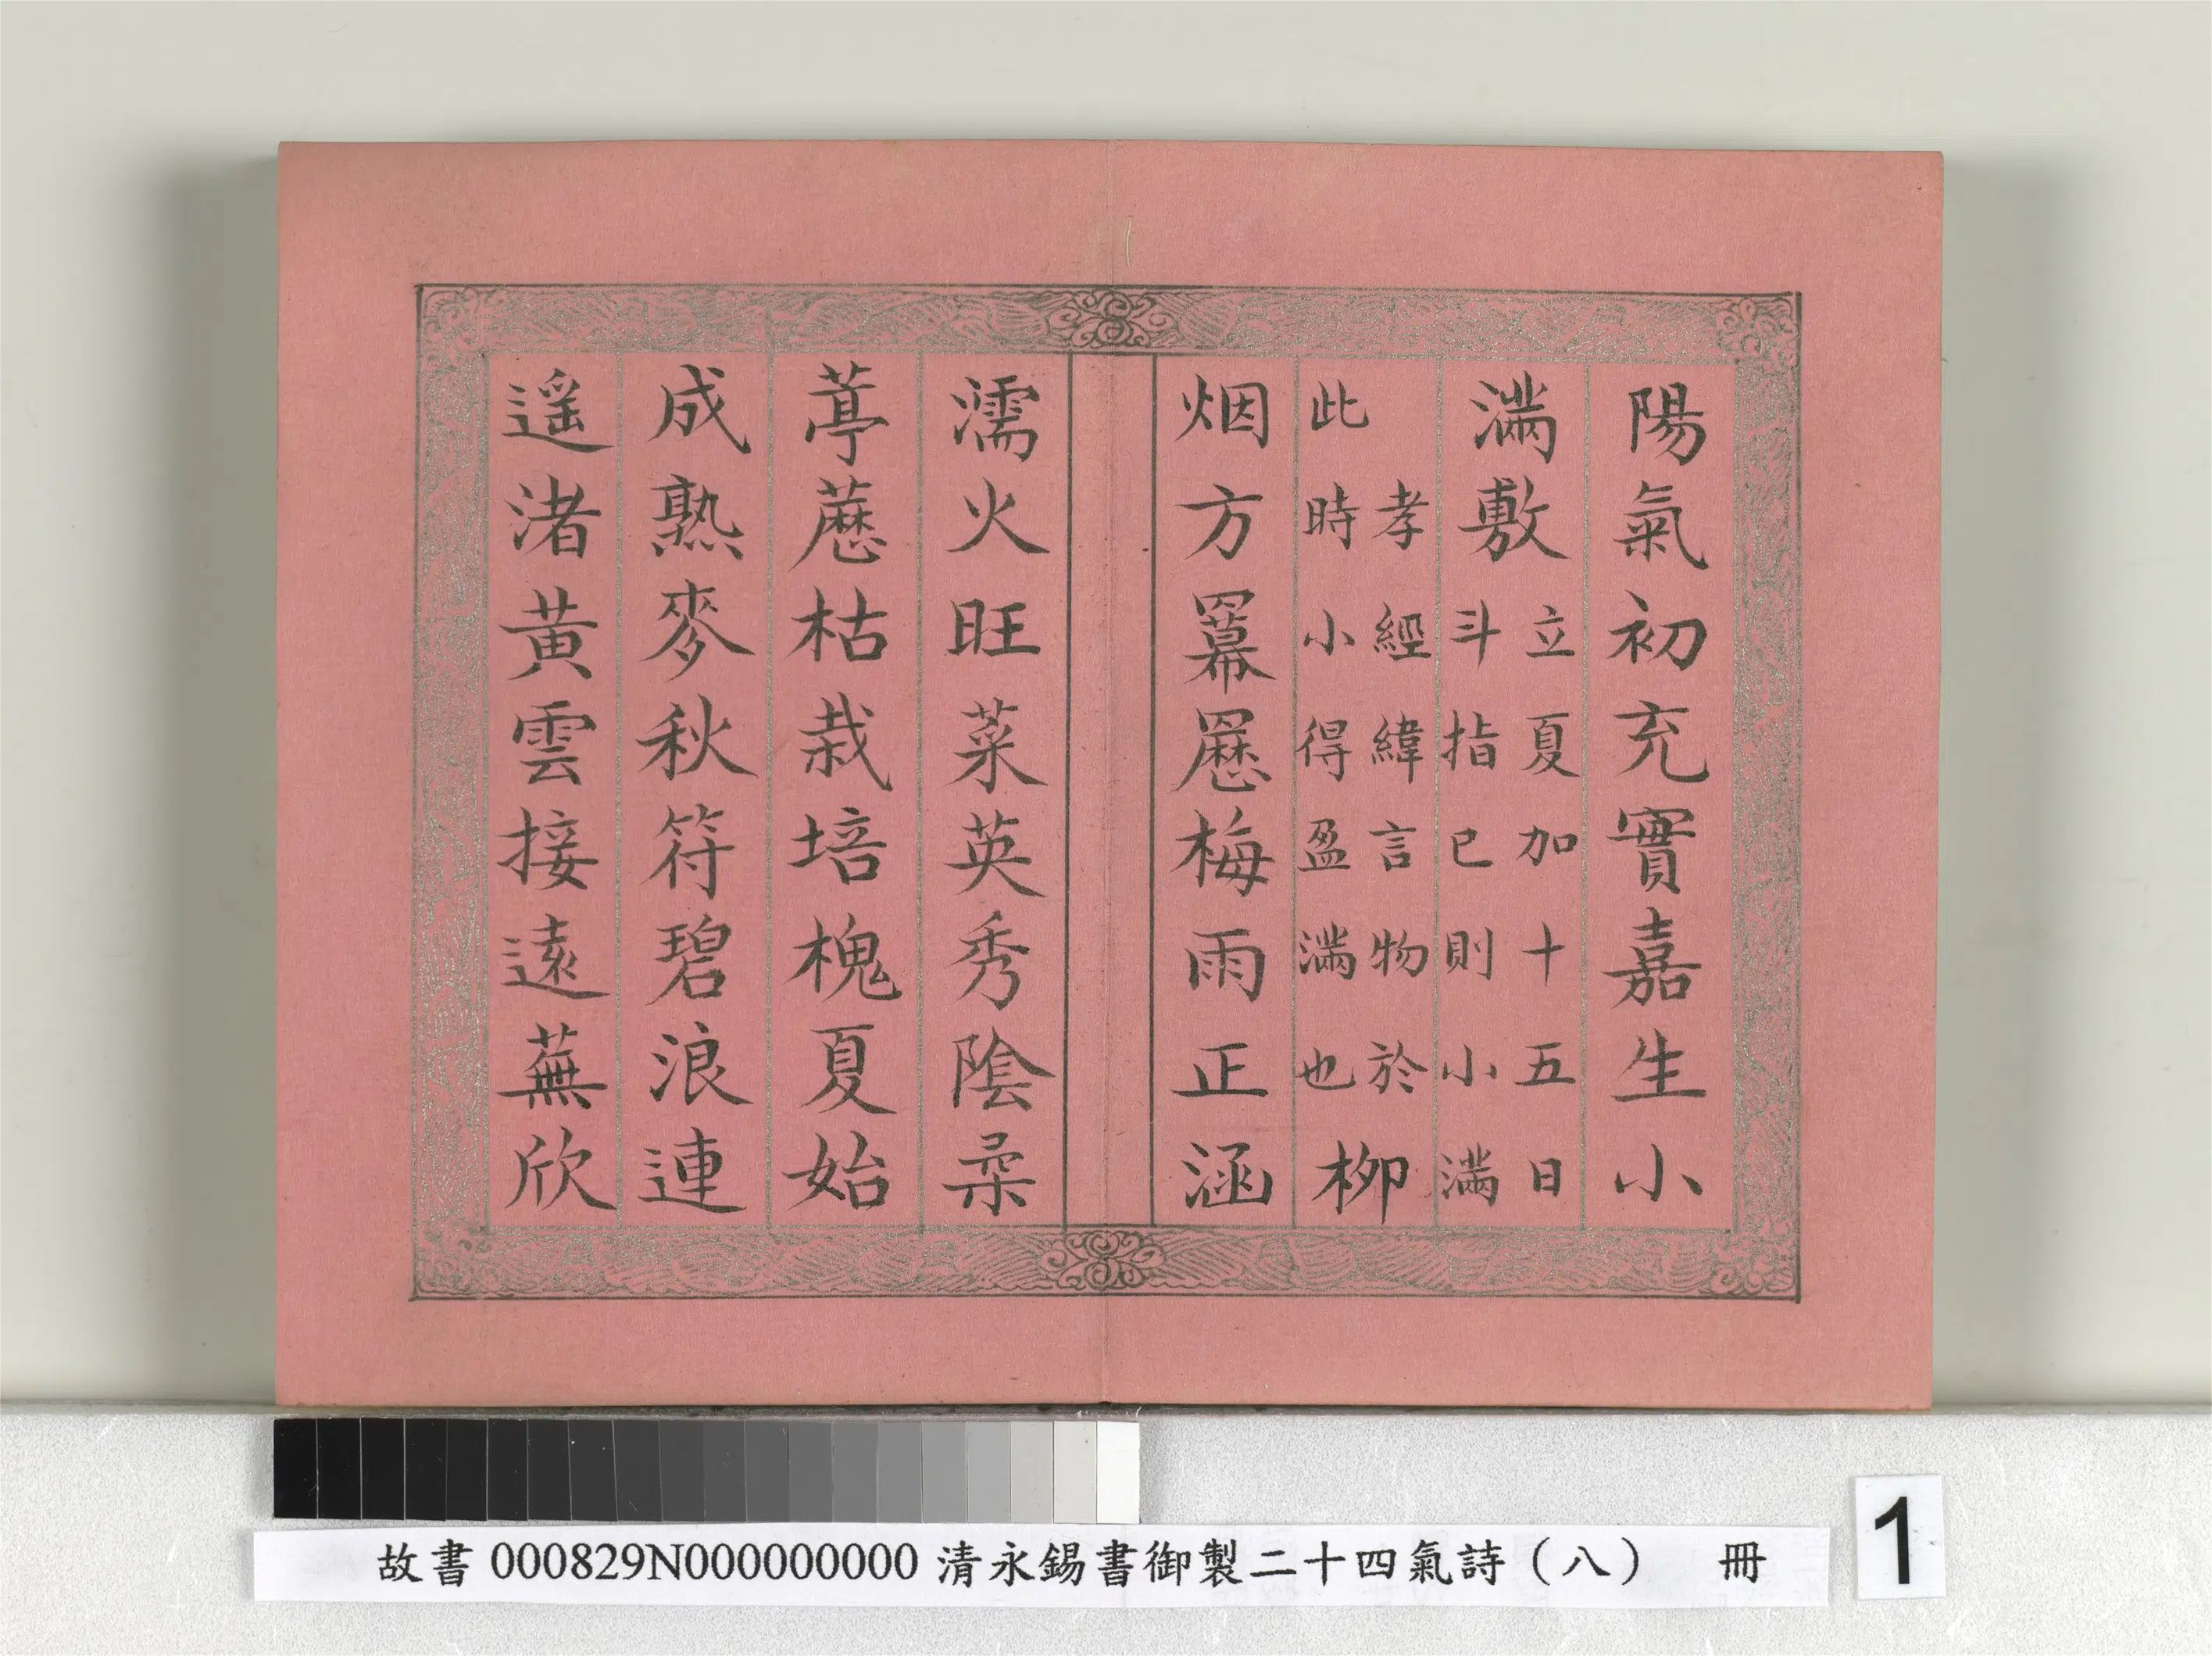 陽氣初充實嘉生小
滿敷
立夏加十五日
斗指巳則小滿
孝經緯言物於
此時小得盈滿也
柳
烟方羃䍥梅雨正涵
濡火旺菜英秀陰柔
葶藶枯栽培槐夏始
成熟麥秋符碧浪連
遥渚黄雲接遠蕪欣
故書 000829N000000000 清永錫書御製二十四氣詩（八） 冊
1